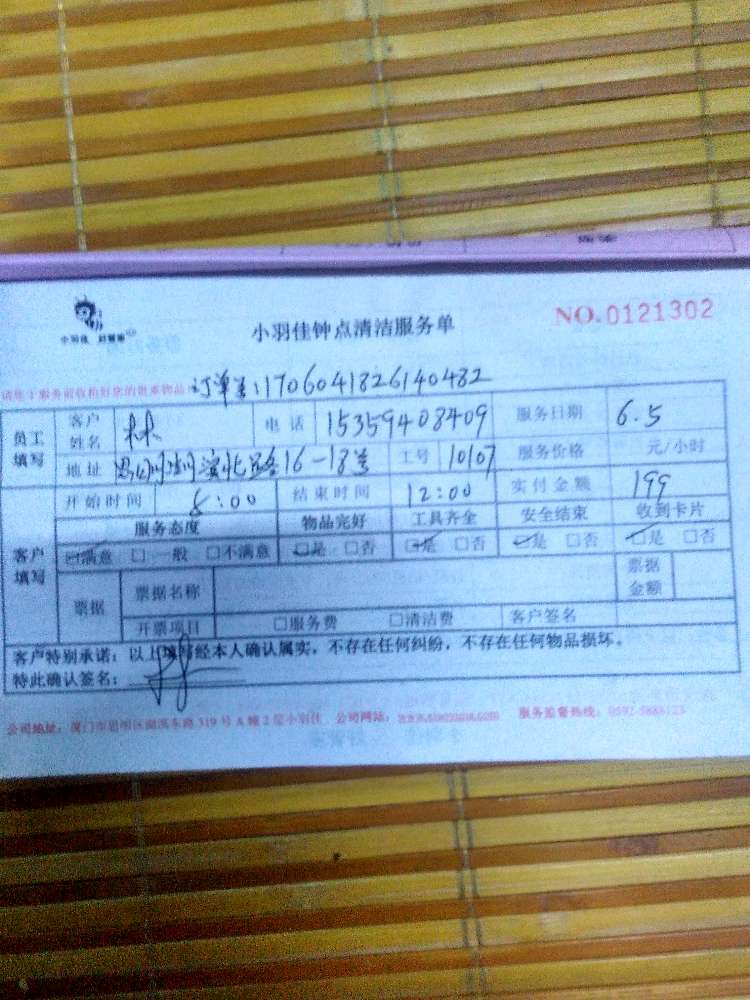 小羽佳钟点清洁服务单
NO.0121302
订单号:1706041826140482
员工填写 客户姓名 林 电话 15359408409 服务日期 6.5
地址 16-18号 工号 10107 服务价格 元/小时
开始时间 8:00 结束时间 12:00 实付金额 199
服务态度 物品完好 工具齐全 安全结束 收到卡片
客户填写 满意 □一般 □不满意 是 □否 是 □否 是 □否 是 □否
票据 票据名称 票据金额
开票项目 □服务费 □清洁费 客户签名
客户特别承诺:以上填写经本人确认属实,不存在任何纠纷,不存在任何物品损坏。
特此确认签名:
公司地址:厦门市思明区湖滨东路 319 号 A 幢 2 层小羽佳 公司网站: 服务监督热线: